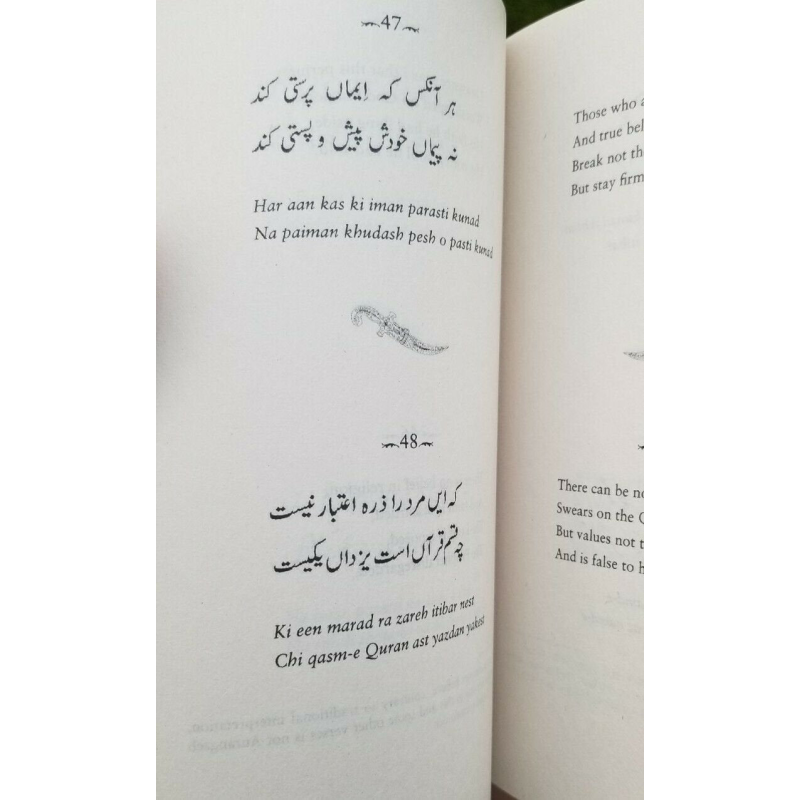 47
ہر آنکس کہ اِیماں پرستی کند
نہ پیماں خودش پیش و پستی کند
Har aan kas ki iman parasti kunad
Na paiman khudash pesh o pasti kunad
48
کہ ایں مرد را ذرہ اعتبار نیست
چہ قسمِ قرآں است یزداں یکیست
Ki een marad ra zareh itibar nest
Chi qasm-e Quran ast yazdan yakest
Those who
And true
Break not
But stay firm
There can be
Swears on the
But values not
And is false to